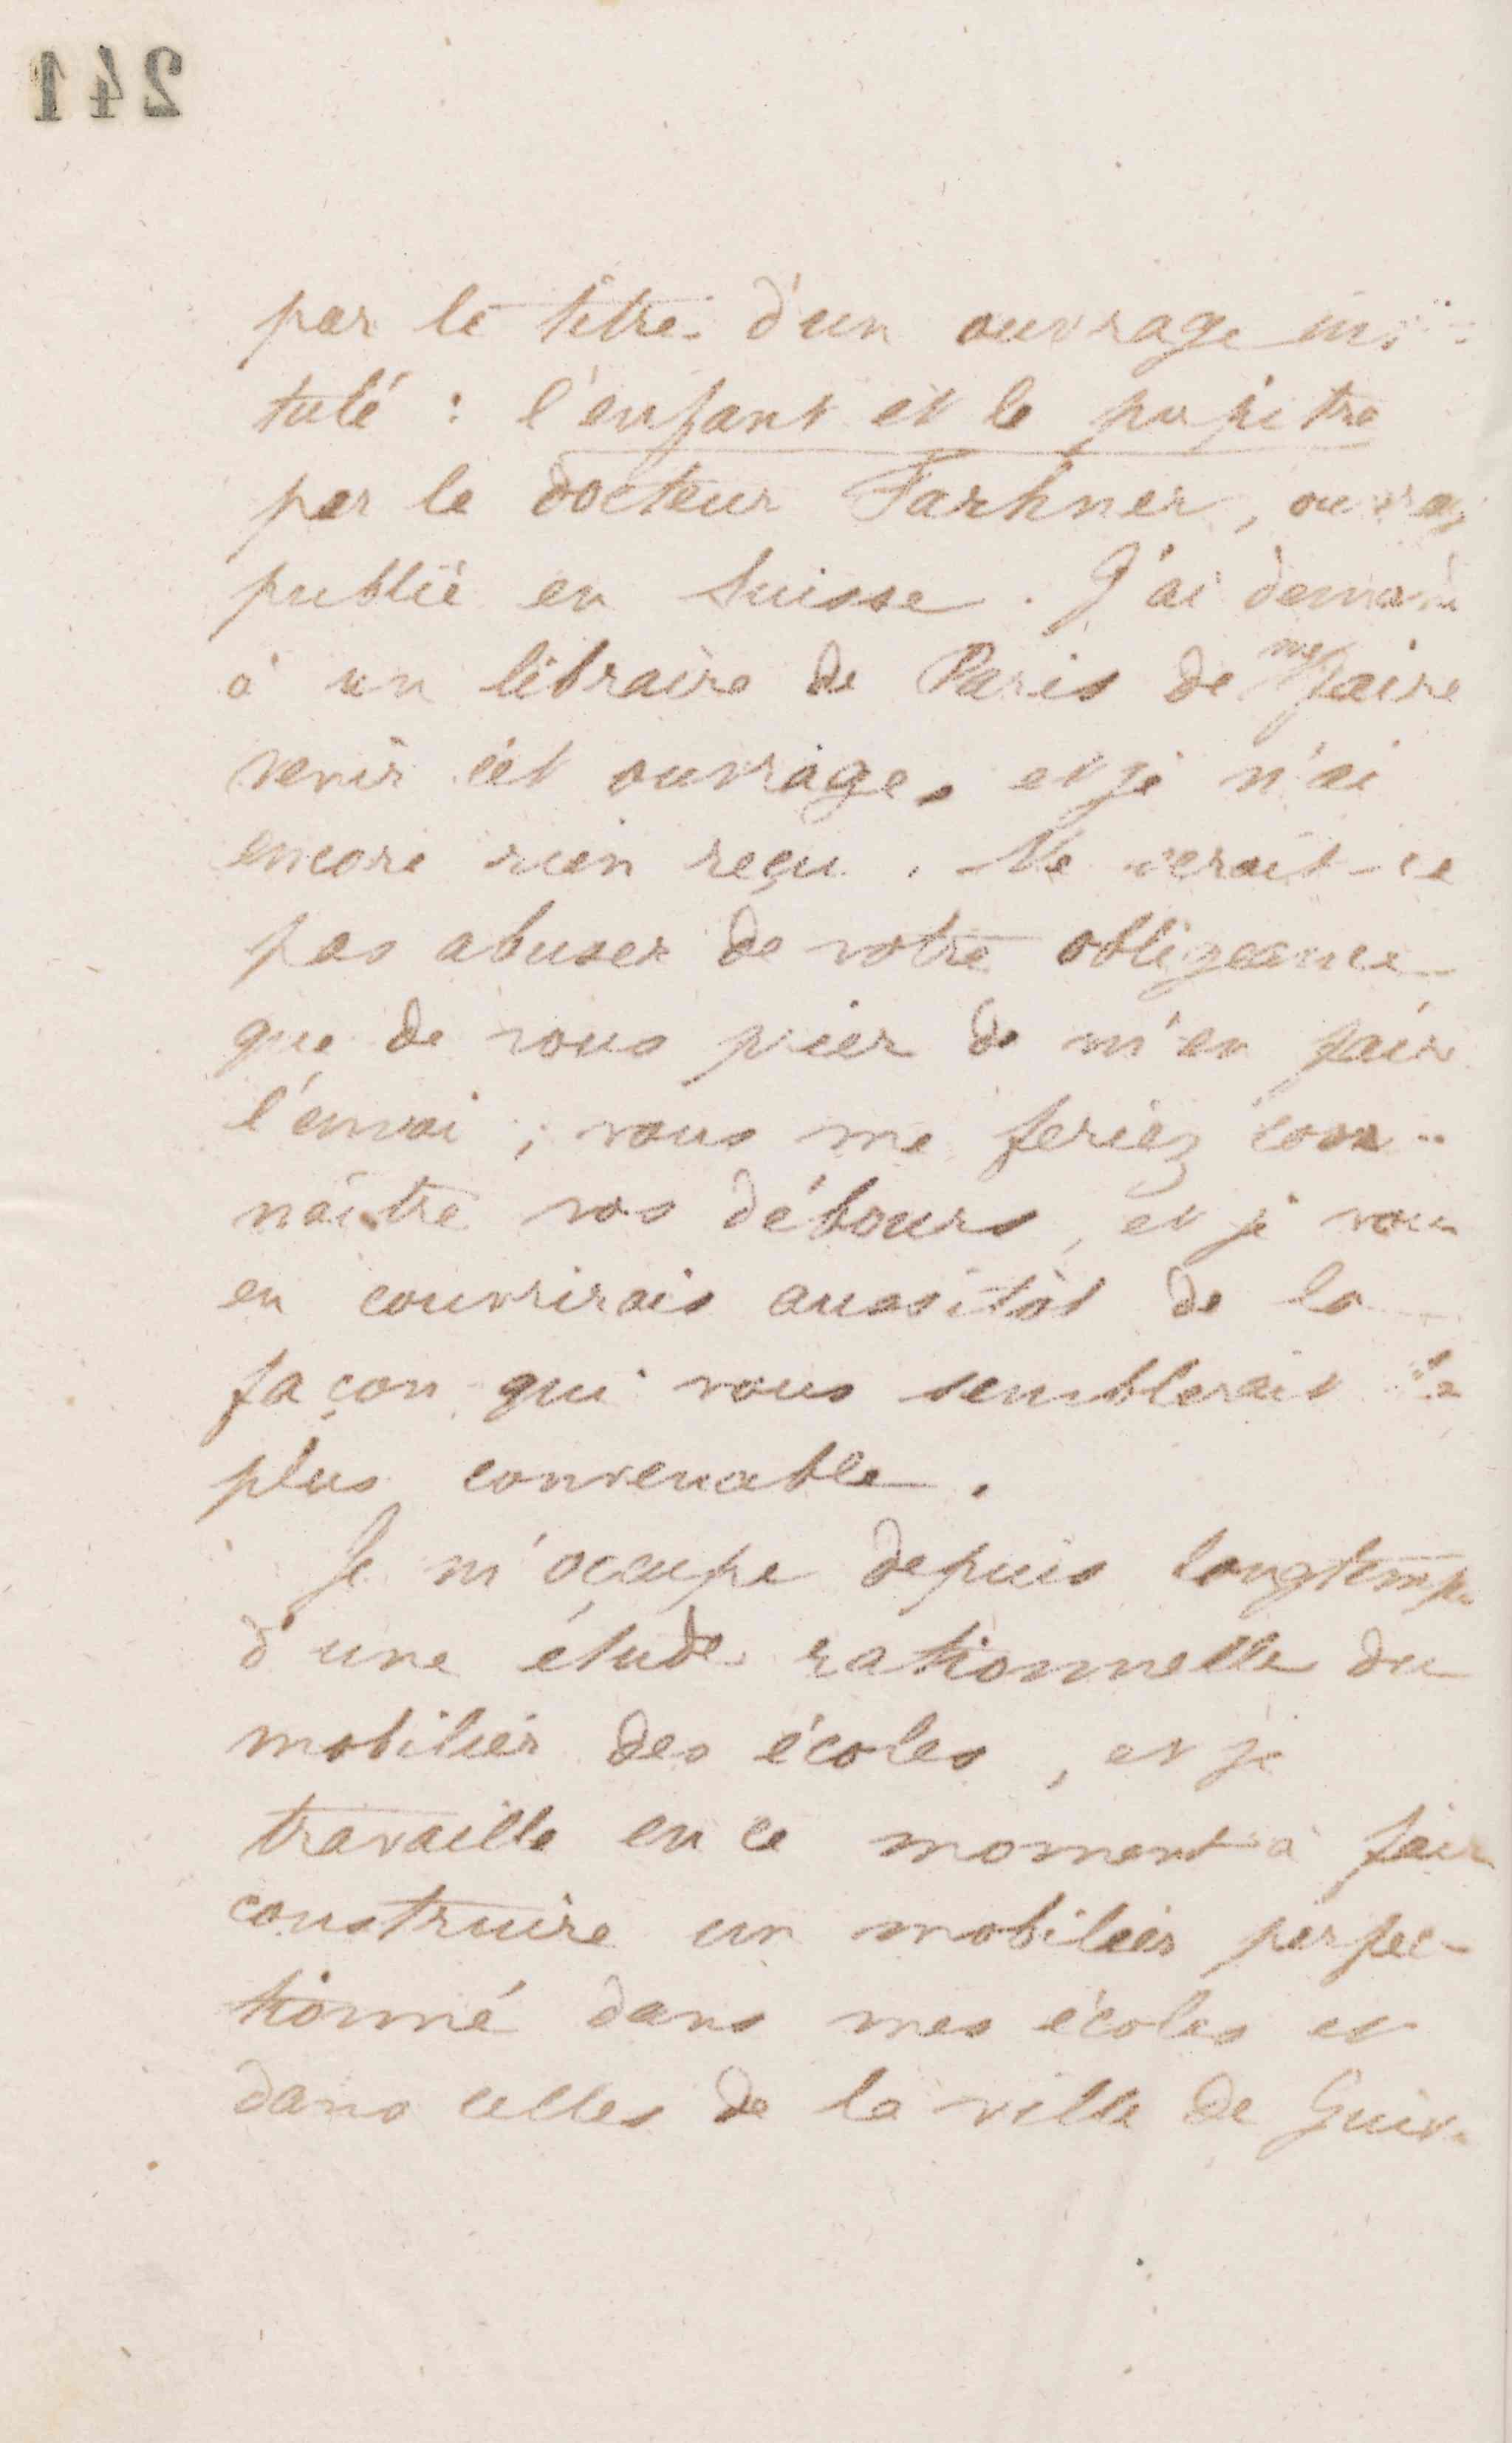 241
par le titre d'un ouvrage
tulé : l'enfant et le pupitre
par le docteur Farhner,
publié en Suisse. J'ai
à un libraire de Paris de me faire
venir cet ouvrage, et je n'ai
encore rien reçu. Ne serait-ce
pas abuser de votre obligeance
que de vous prier de m'en fair
l'envoi ; vous me feriez con-
naître vos débours, et je vous
en couvrirais aussitôt de la
façon qui vous semblerait la
plus convenable.
Je m'occupe depuis longtemps
d'une étude rationnelle du
mobilier des écoles, et je
travaille en ce moment à fair
construire un mobilier perfec-
tionné dans mes écoles et
dans celles de la ville de